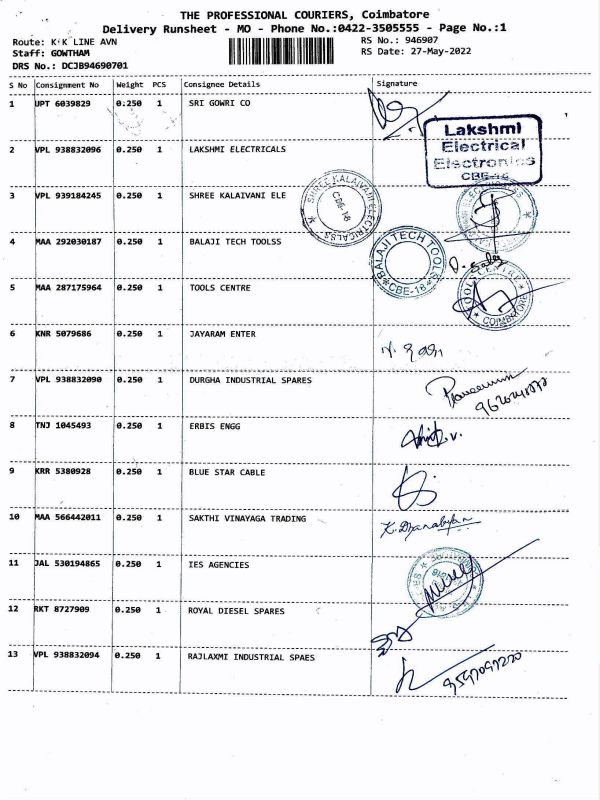 THE PROFESSIONAL COURIERS, Coimbatore
Delivery Runsheet - MO - Phone No.:0422-3505555 - Page No.:1
Route: K·K LINE AVN
RS No.: 946907
Staff: GOWTHAM
RS Date: 27-May-2022
DRS No.: DCJB94690701
S No Consignment No Weight PCS Consignee Details Signature
1 UPT 6039829 0.250 1 SRI GOWRI CO
Lakshmi
Electrical
Electronics
CBE-18
2 VPL 938832096 0.250 1 LAKSHMI ELECTRICALS
3 VPL 939184245 0.250 1 SHREE KALAIVANI ELE
SHREE KALAIVANI ELECTRICALSS
CBE-18
4 MAA 292030187 0.250 1 BALAJI TECH TOOLSS
BALAJI TECH TOOLS
CBE-18
5 MAA 287175964 0.250 1 TOOLS CENTRE
TOOLS CENTRE
COIMBATORE
6 KNR 5079686 0.250 1 JAYARAM ENTER
7 VPL 938832090 0.250 1 DURGHA INDUSTRIAL SPARES
8 TNJ 1045493 0.250 1 ERBIS ENGG
9 KRR 5380928 0.250 1 BLUE STAR CABLE
10 MAA 566442011 0.250 1 SAKTHI VINAYAGA TRADING
11 JAL 530194865 0.250 1 IES AGENCIES
12 RKT 8727909 0.250 1 ROYAL DIESEL SPARES
13 VPL 938832094 0.250 1 RAJLAXMI INDUSTRIAL SPAES